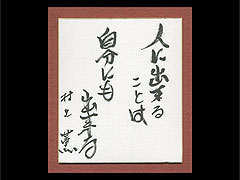 人に出来る
ことは
自分にも
出来る
村上 薫